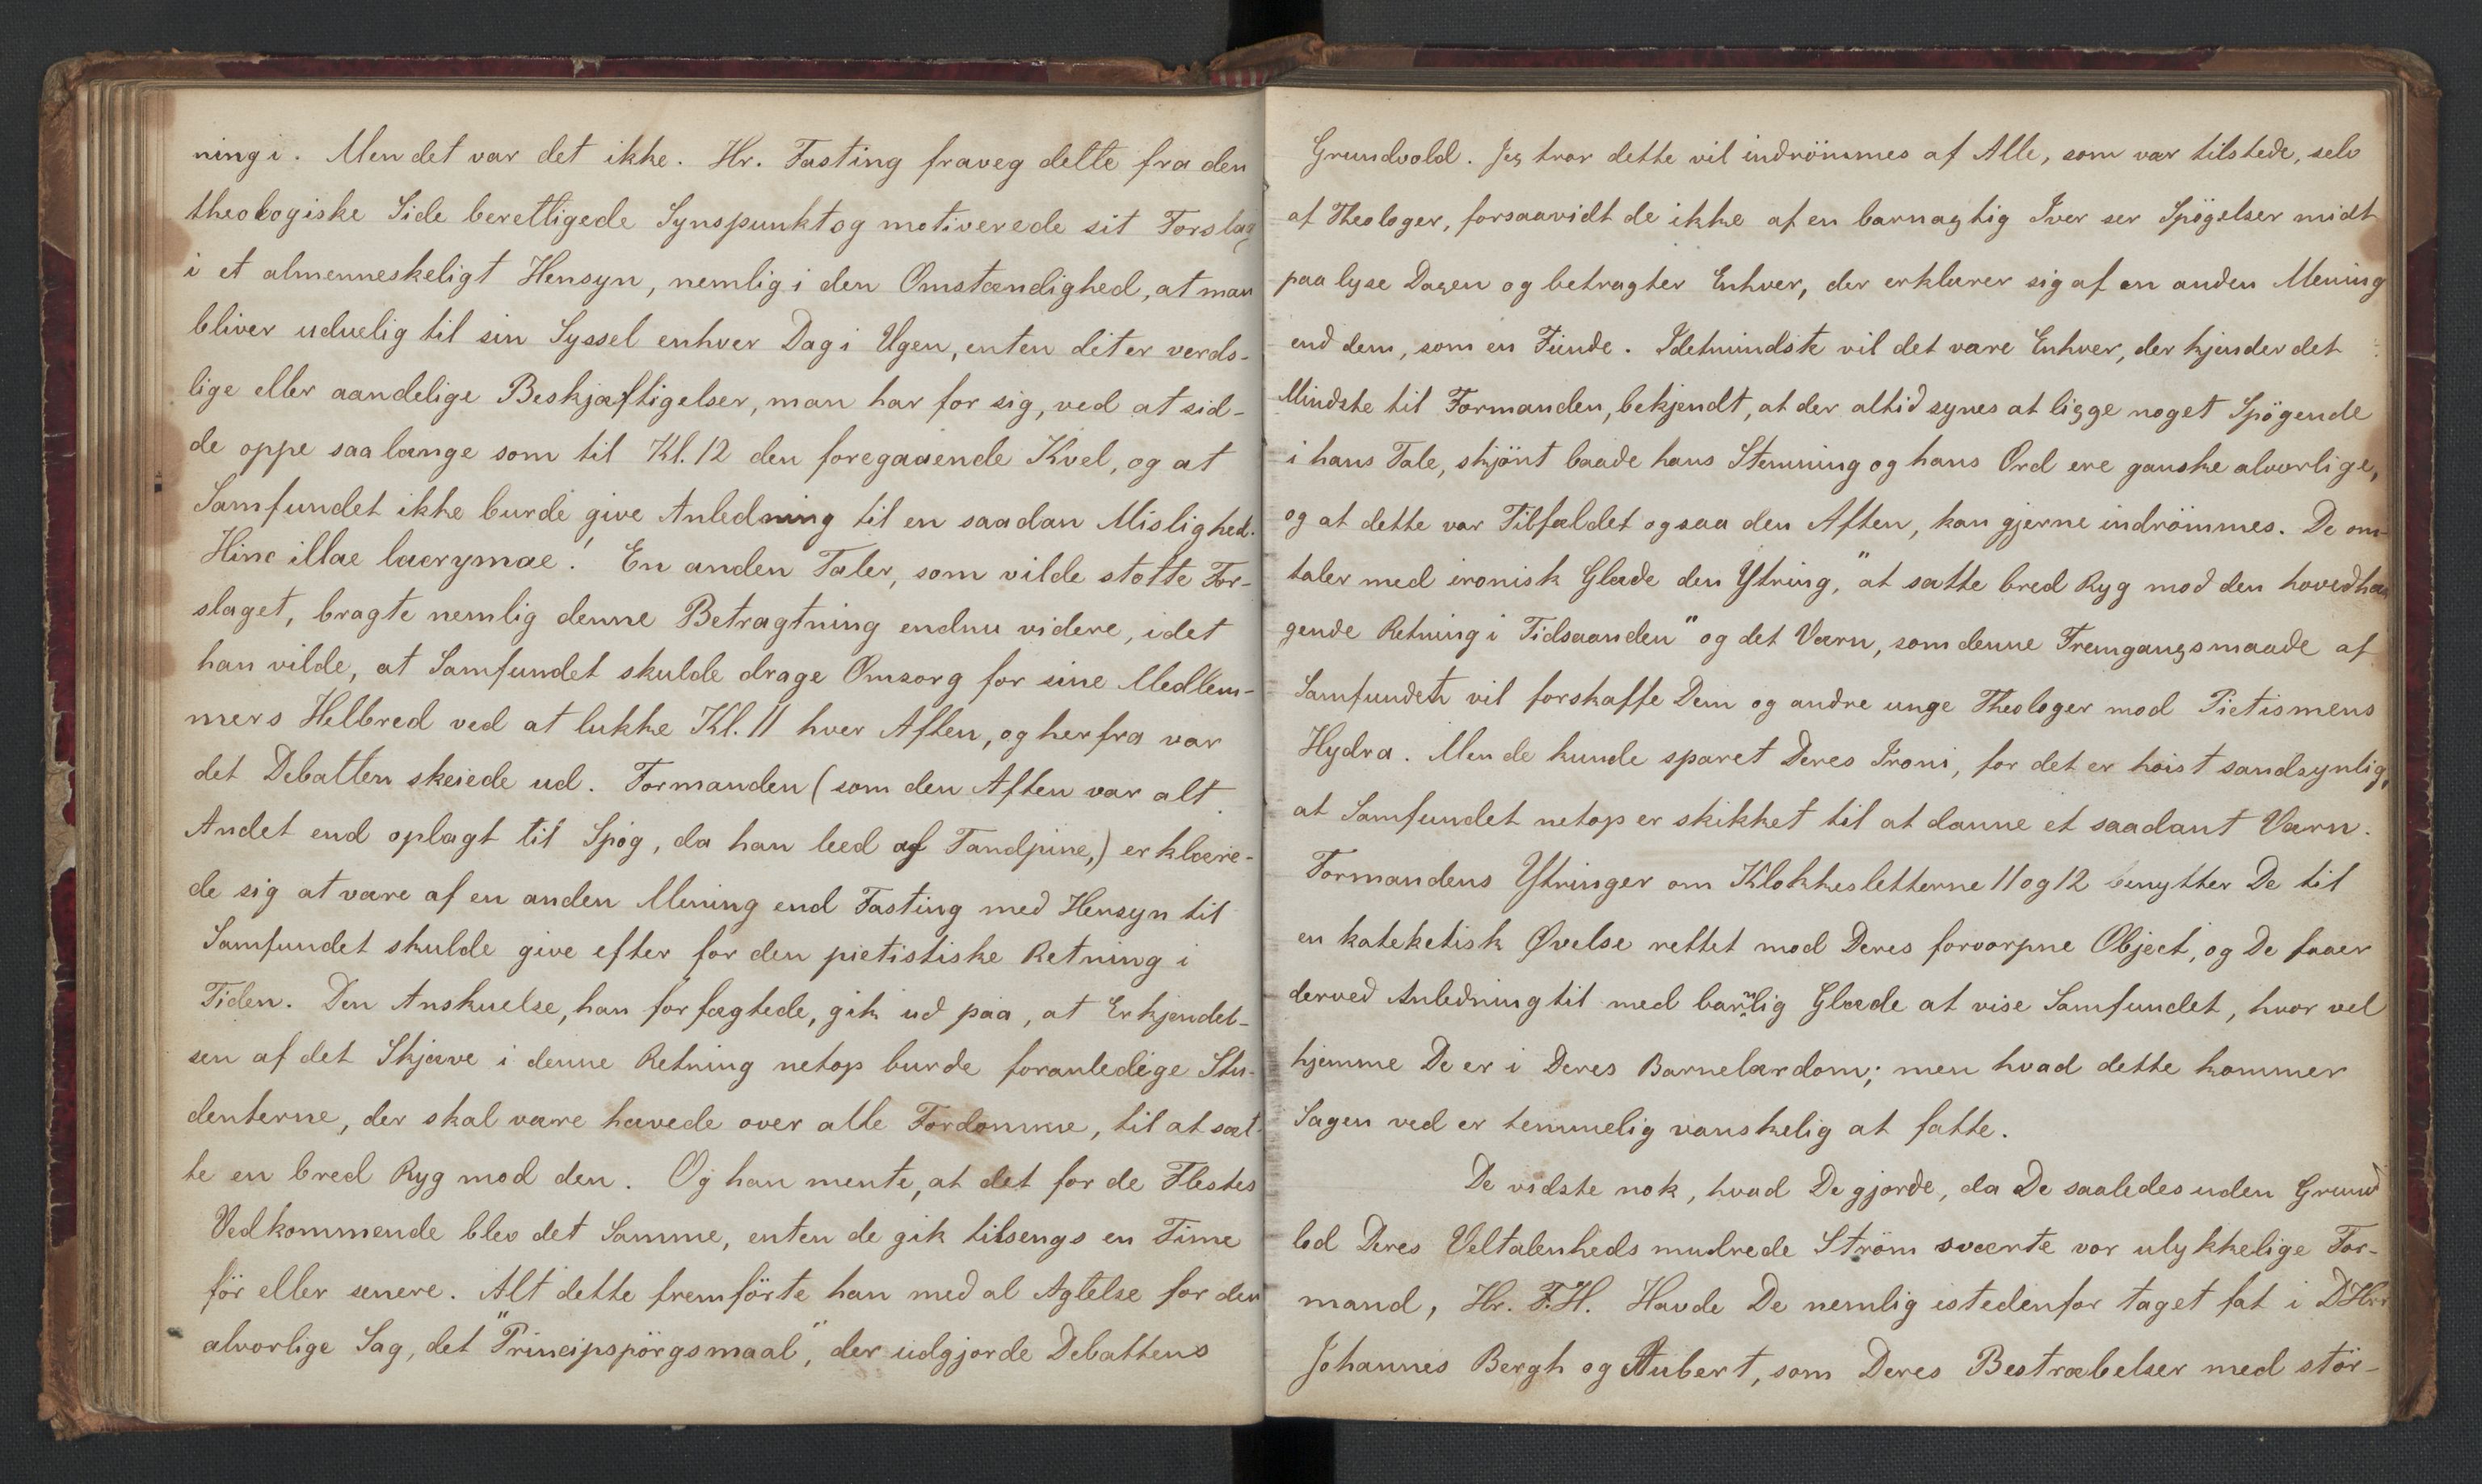 ning i. Men det var det ikke. Hr. Fasting fraveg dette fra den
theologiske Side berettigede Synspunkt og motiverede sit Forslag
i et almenneskeligt Hensyn, nemlig i den Omstændighed, at man
bliver uduelig til sin Syssel enhver Dag i Ugen, enten det er verds-
lige eller aandelige Beskjæftigelser, man har for sig, ved at sid-
de oppe saa længe som til Kl. 12 den foregaaende Kvel, og at
Samfundet ikke burde give Anledning til en saadan Mislighed.
Hinc illae lacrymae! En anden Taler, som vilde støtte For-
slaget, bragte nemlig denne Betragtning endnu videre, idet
han vilde, at Samfundet skulde drage Omsorg for sine Medlem-
mers Helbred ved at lukke Kl. 11 hver Aften, og herfra var
det Debatten skeiede ud. Formanden (som den Aften var alt
Andet end oplagt til Spøg, da han leed af Tandpine,) erklære-
de sig at være af en anden Mening end Fasting med Hensyn til
Samfundet skulde give efter for den pietistiske Retning i
Tiden. Den Anskuelse, han forfægtede, gik ud paa, at Erkjendel-
sen af det Skjæve i denne Retning netop burde foranledige Stu-
denterne, der skal være hævede over alle Fordomme, til at sæt-
te en bred Ryg mod den. Og han mente, at det for de Flestes
Vedkommende blev det Samme, enten de gik tilsengs en Time
för eller senere. Alt dette fremförte han med al Agtelse for den
alvorlige Sag, det "Principspörgsmaal", der udgjorde Debattens
Grundvold. Jeg tror dette vil indrömmes af Alle, som var tilstede, selv
af Theologer, forsaavidt de ikke af en barnagtig Iver ser Spögelser midt
paa lyse Dagen og betragter Enhver, der erklærer sig af en anden Mening
end dem, som en Fiende. Idetmindste vil det være Enhver, der kjender det
Mindste til Formanden, bekjendt, at der altid synes at ligge noget Spögende
i hans Tale, skjönt baade hans Stemning og hans Ord ere ganske alvorlige,
og at dette var Tilfældet ogsaa den Aften, kan gjerne indrömmes. De om-
taler med ironisk Glæde den Ytring, "at sætte bred Ryg mod den hovedhæn
gende Retning i Tidsaanden" og det Værn, som denne Fremgangsmaade af
Samfundet vil forskaffe Dem og andre unge Theologer mod Pietismens
Hydra. Men de kunde sparet Deres Ironi, for det er høist sandsynlig,
at Samfundet netop er skikket til at danne et saadant Værn.
Formandens Ytringer om Klokkesletterne 11 og 12 benytter De til
en kateketisk Øvelse rettet mod Deres forvorpne Object, og De faaer
derved Anledning til med barnlig Glæde at vise Samfundet, hvor vel
hjemme De er i Deres Barnelærdom; men hvad dette kommer
Sagen ved er temmelig vanskelig at fatte.
De vidste nok, hvad De gjorde, da De saaledes uden Grund
lod Deres Veltalenheds mudrede Ström sværte vor ulykkelige For-
mand, Hr. F.H. Havde De nemlig istedenfor taget fat i DHrr
Johannes Bergh og Aubert, som Deres Bestræbelser med stör-